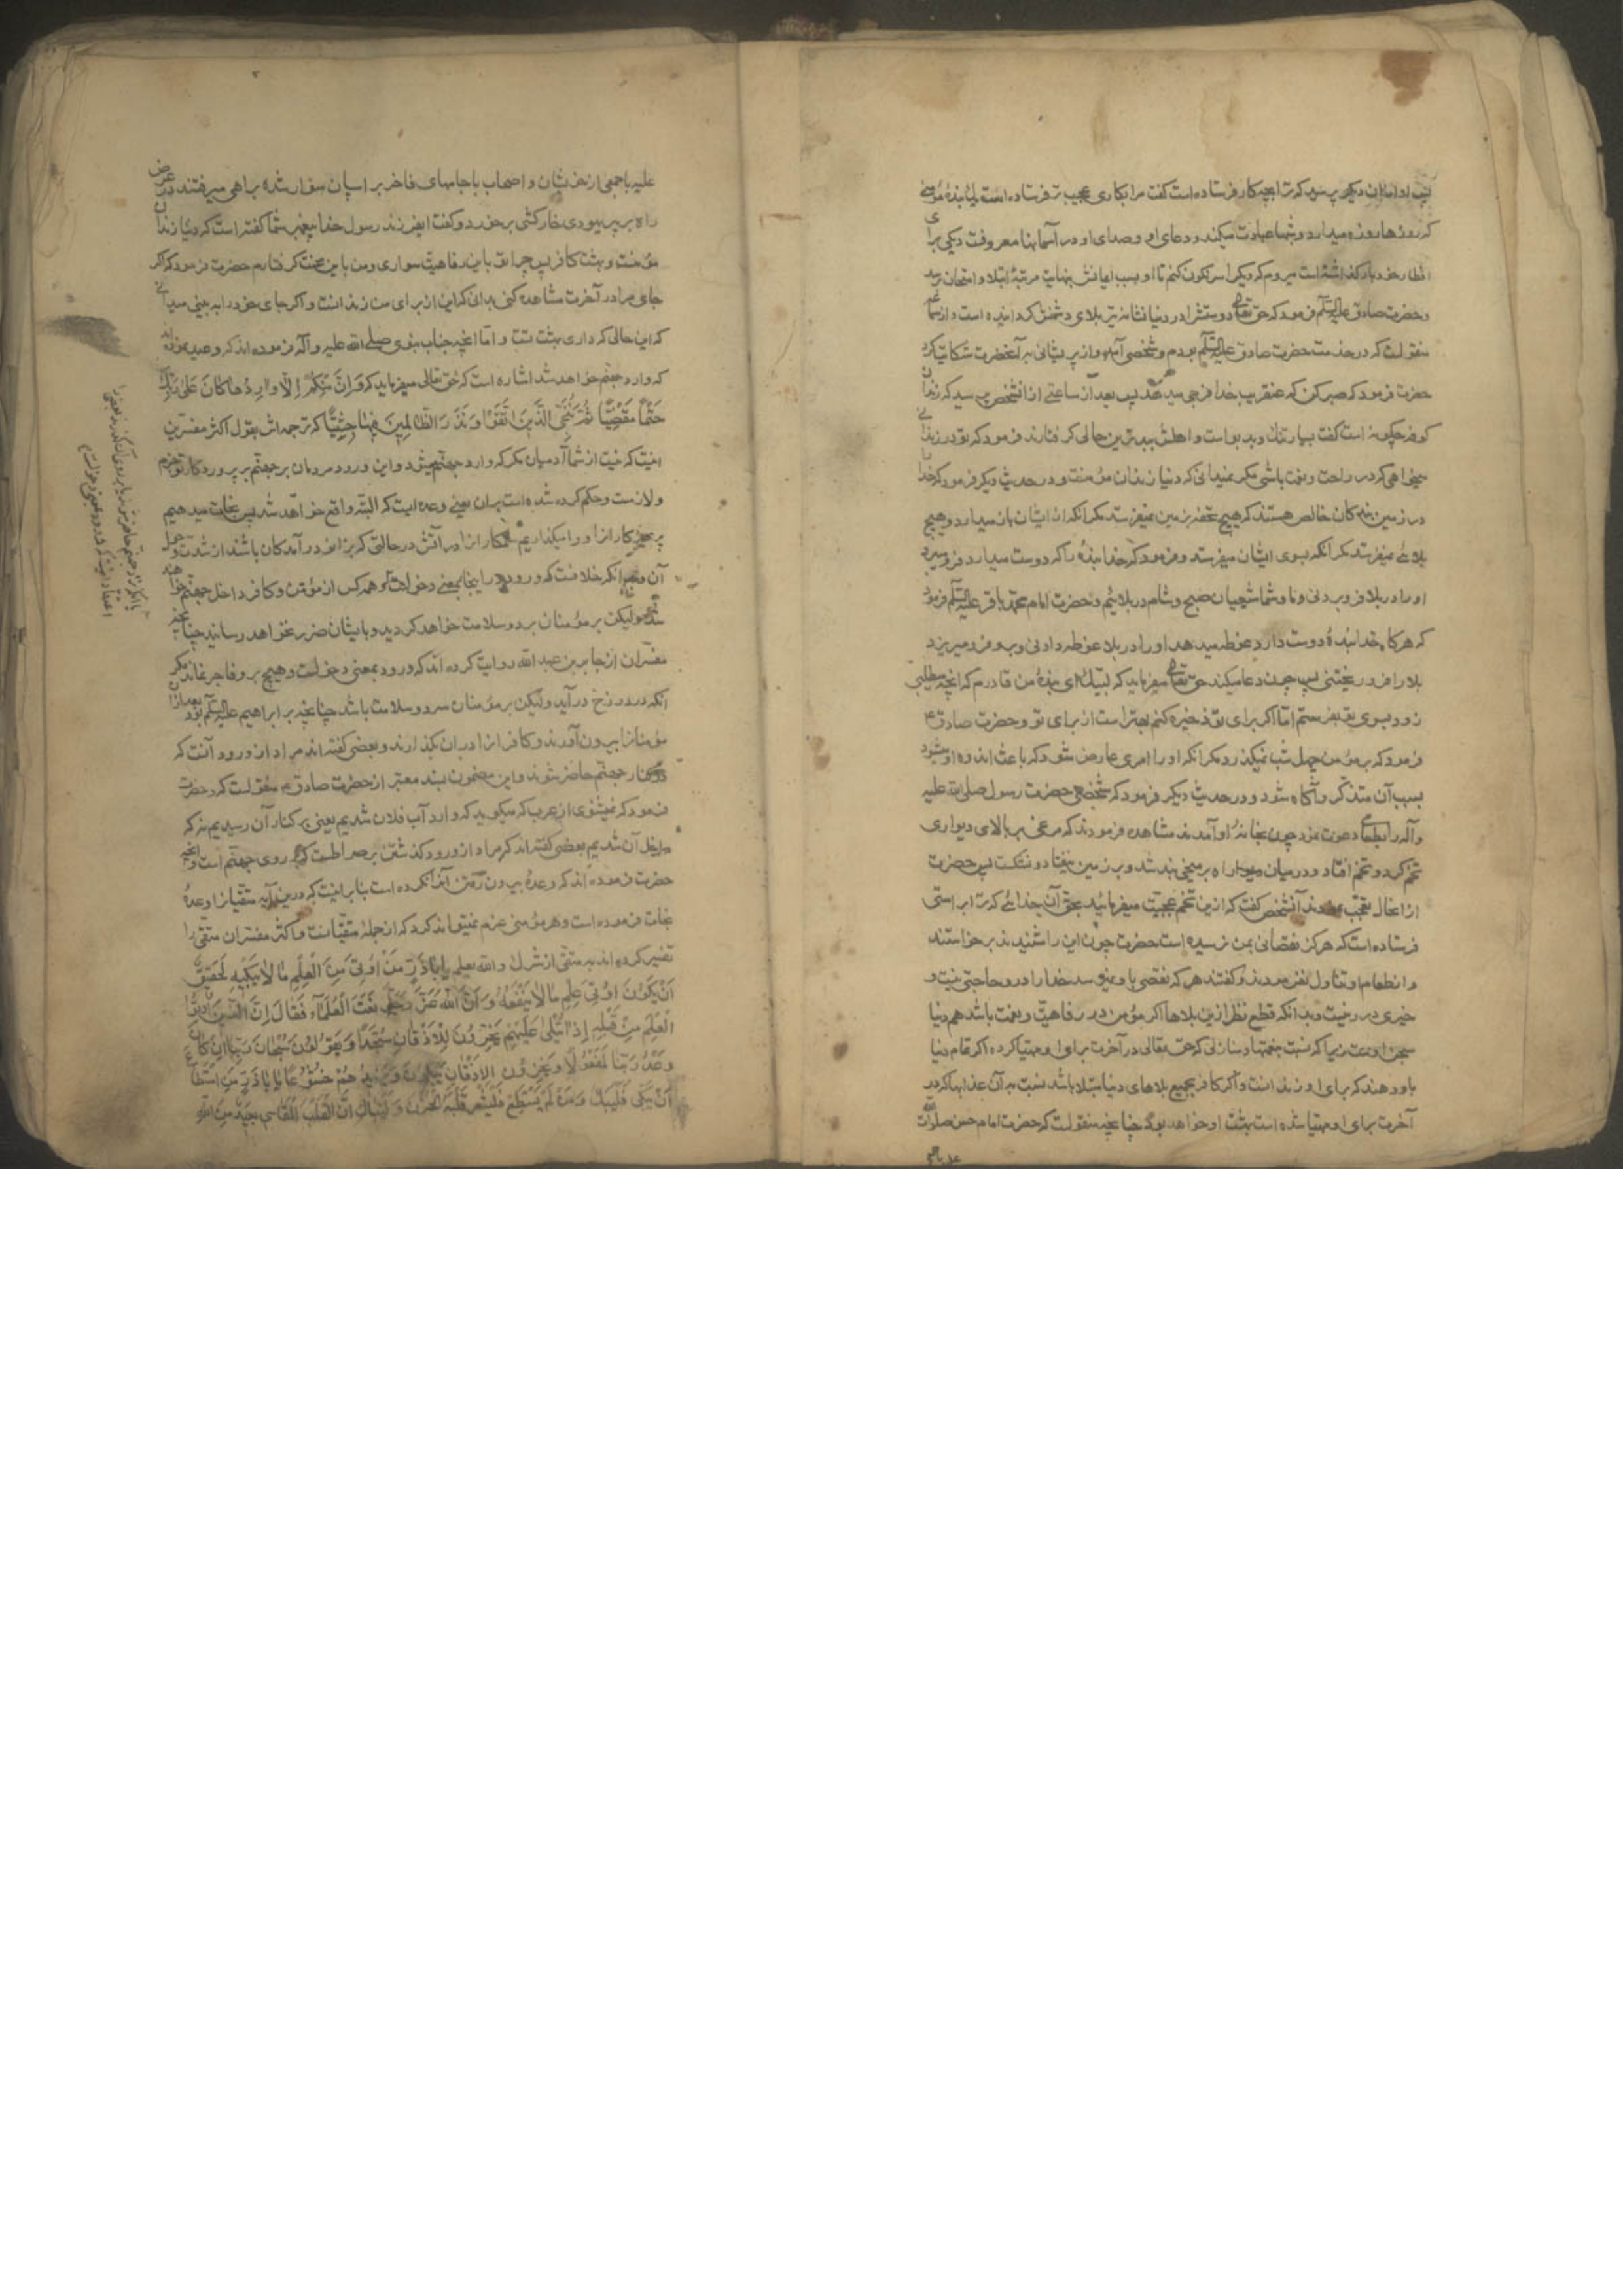 پس او از ان دیگر پرسید که ترا بچه کار فرستاده است گفت مرا بکاری عجیب تر فرستاده است بنده مؤمنی
که روزها روزه میدارد و شبها عبادت میکند و دعای او و صدای او در آسمانها معروفست دیکی برای
افطار خود بار گذاشته است میروم که دیک را سرنکون کنم تا او بسبب ایمانش بنهایت مرتبۀ ابتلا و امتحان برسد
و حضرت صادق علیه السلم فرمود که حق تعالی دوستش را در دنیا نشانه تیر بلای دشمنش کردانیده است و از
منقولست که در خدمت حضرت صادق علیه السلم بودم و شخصی آمد و از پریشانی به آنحضرت شکایت کرد
حضرت فرمود که صبر کن که عنقریب خدا فرجی میدهد پس بعد از ساعتی از انشخص پرسید که زندان
کوفه چکونه است گفت بسیار تنک و بدبو است و اهلش ببدترین حالی کرفتارند فرمود که تو در زندانی
میخواهی که در راحت و نعمت باشی مکر نمیدانی که دنیا زندان مؤمنست و در حدیث دیکر فرمود که خدا را
در زمین بندکان خالص هستند که هیچ تحفه بزمین نمیفرستد مکر آنکه از ایشان باز میدارد و هیچ
بلائی نمیفرستد مکر آنکه بسوی ایشان میفرستد و فرمود که خدا بنده را که دوست میدارد فرو میبرد
او را در بلا فرو بردنی و ما و شما شیعیان صبح و شام در بلائیم و حضرت امام محمد باقر علیه السلم فرمود
که هرکاه خدا بندۀ دوست دارد غوطه میدهد او را در بلا غوطه دادنی و برو فرو میریزد
بلا را فرو ریختنی پس چون دعا میکند حق تعالی میفرماید که لبیک ای بندۀ من قادرم که آنچه میطلبی
زود بسوی تو بفرستم اما اکر برای تو ذخیره کنم بهتر است از برای تو و حضرت صادق ع
فرمود که بر مؤمن چهل شب نمیکذرد مکر آنکه او را امری عارض شود که باعث اندوه او میشود
بسبب آن متذکر و آکاه شود و در حدیث دیکر فرمود که شخصی حضرت رسول صلی الله علیه
و آله را بطعامی دعوت نمود چون بخانۀ او آمدند مشاهده فرمودند که مرغی بر بالای دیواری
تخم کرد و تخم افتاد و در میان دیوار بر میخی بند شد و بر زمین نیفتاد و نشکست پس حضرت
از انحال تعجب نمودند آنشخص کفت که ازین تخم عجبت میفرمائید بحق آن خدائی که ترا براستی
فرستاده است که هرکز نقصانی بمن نرسیده است حضرت چون این را شنیدند برخواستند
و از طعام او تناول نفرمودند و کفتند هر که نقصی باو نمیرسد خدا را درو حاجتی نیست و
خیری درو نیست و بدانکه قطع نظر ازین بلاها اکر مؤمن در رفاهیت و نعمت باشد هم دنیا
سجن اوست زیرا که نسبت بنعمتها و منازلی که حق تعالی در آخرت برای او مهیا کرده اکر تمام دنیا
باو دهند که برای او زندانست و اکر کافر بجمیع بلاهای دنیا مبتلا باشد نسبت به آن عذابها که در
آخرت برای او مهیا شده است بهشت او خواهد بود چنانچه منقولست که حضرت امام حسن صلوات الله
علیه با جمعی از خویشان و اصحاب با جامهای فاخر بر اسبان سوار شده براهی میرفتند در عرض
راه بر پیر یهودی خارکشی برخورد و گفت ایفرزند رسول خدا پیغمبر شما کفته است که دنیا زندان
مؤمنست و بهشت کافر پس چرا تو باین رفاهیت سواری و من باین محنت کرفتارم حضرت فرمود که اکر
جای مرا در آخرت مشاهده کنی بدانی که این از برای من زندانست و اکر جای خود را به بینی میدانی
که این حالی که داری بهشت تست و اما آنچه جناب نبوی صلی الله علیه و آله فرموده اند که وعید نموده اند
که وارد جهنم خواهد شد اشاره است که حق تعالی میفرماید که وَاِنْ مِنْكُمْ اِلّا وارِدُها كانَ عَلى رَبِّكَ
حَتْمًا مَقْضِيًّا ثُمَّ نُنَجِّي الَّذينَ اتَّقَوْا وَنَذَرُ الظّالِمينَ فيها جِثِيًّا که ترجمه اش بقول اکثر مفسرین
اینست که نیست از شما آدمیان مکر که وارد جهنم میشود و این ورود مردمان بر جهنم بر پروردکار تو حتم
و لازمست و حکم کرده شده است بران یعنی وعده ایست که البته واقع خواهد شد پس نجات میدهیم
پرهیزکارانرا و وامیکذاریم ستمکارانرا در آتش در حالتی که بزانو در آمدکان باشند از شدت و هول
آن و بدانکه خلافست که ورود درینجا بمعنی دخولست که همه کس از مؤمن و کافر داخل جهنم خواهند
شد ولیکن بر مؤمنان برد و سلامت خواهد کردید و بایشان ضرر نخواهد رسانید چنانچه
مفسران از جابر بن عبد الله روایت کرده اند که ورود بمعنی دخولست و هیچ بر و فاجر نماند مکر
آنکه در دوزخ در آید ولیکن بر مؤمنان سرد و سلامت باشد چنانچه بر ابراهیم علیه السلم بود بعد ازان
مؤمنانرا بیرون آورند و کافرانرا دران بکذارند و بعضی کفته اند مراد از ورود آنست که
در کنار جهنم حاضر شوند و این مضمون بسند معتبر از حضرت صادق ع منقولست که حضرت
فرمود که نمیشنوی از عرب که میکوید که وارد آب فلان شدیم یعنی بر کنار آن رسیدیم نه که
داخل آن شدیم بعضی کفته اند که مراد از ورود کذشتن بر صراطست که بر روی جهنم است و آنچه
حضرت فرموده اند که وعدۀ بیرون آمدن آنرا نکرده است بنا برانست که درین آیه متقیانرا وعدۀ
نجات فرموده است و هر مؤمنی جزم نمیتواند کرد که از جملۀ متقیانست و اکثر مفسران متقی را
تفسیر کرده اند به متقی از شرک والله یعلم يا اَباذَرٍّ مَنْ اُوتِيَ مِنَ الْعِلْمِ ما لا يُبْكيهِ لَحَقيقٌ
اَنْ يَكُونَ اُوتِيَ عِلْمِ ما لا يَنْفَعُهُ وَ اَنَّ اللهَ عَزَّ وَجَلَّ نَعَتَ الْعُلَمَاءَ فَقَالَ اِنَّ الَّذينَ اُوتُوا
الْعِلْمَ مِنْ قَبْلِهِ اِذا يُتْلى عَلَيْهِمْ يَخِرُّونَ لِلْاَذْقانِ سُجَّدًا وَ يَقُولُونَ سُبْحانَ رَبِّنا اِنْ كانَ
وَعْدُ رَبِّنا لَمَفْعُولًا وَ يَخِرُّونَ لِلْاَذْقانِ يَبْكُونَ وَ يَزيدُهُمْ خُشُوعًا يا اَباذَرٍّ مَنِ اسْتَطاعَ
اَنْ يَبْكِيَ فَلْيَبْكِ وَ مَنْ لَمْ يَسْتَطِعْ فَلْيُشْعِرْ قَلْبَهُ الْحُزْنَ وَ لْيَتَباكَ اِنَّ الْقَلْبَ الْقاسِيَ بَعيدٌ مِنَ اللهِ